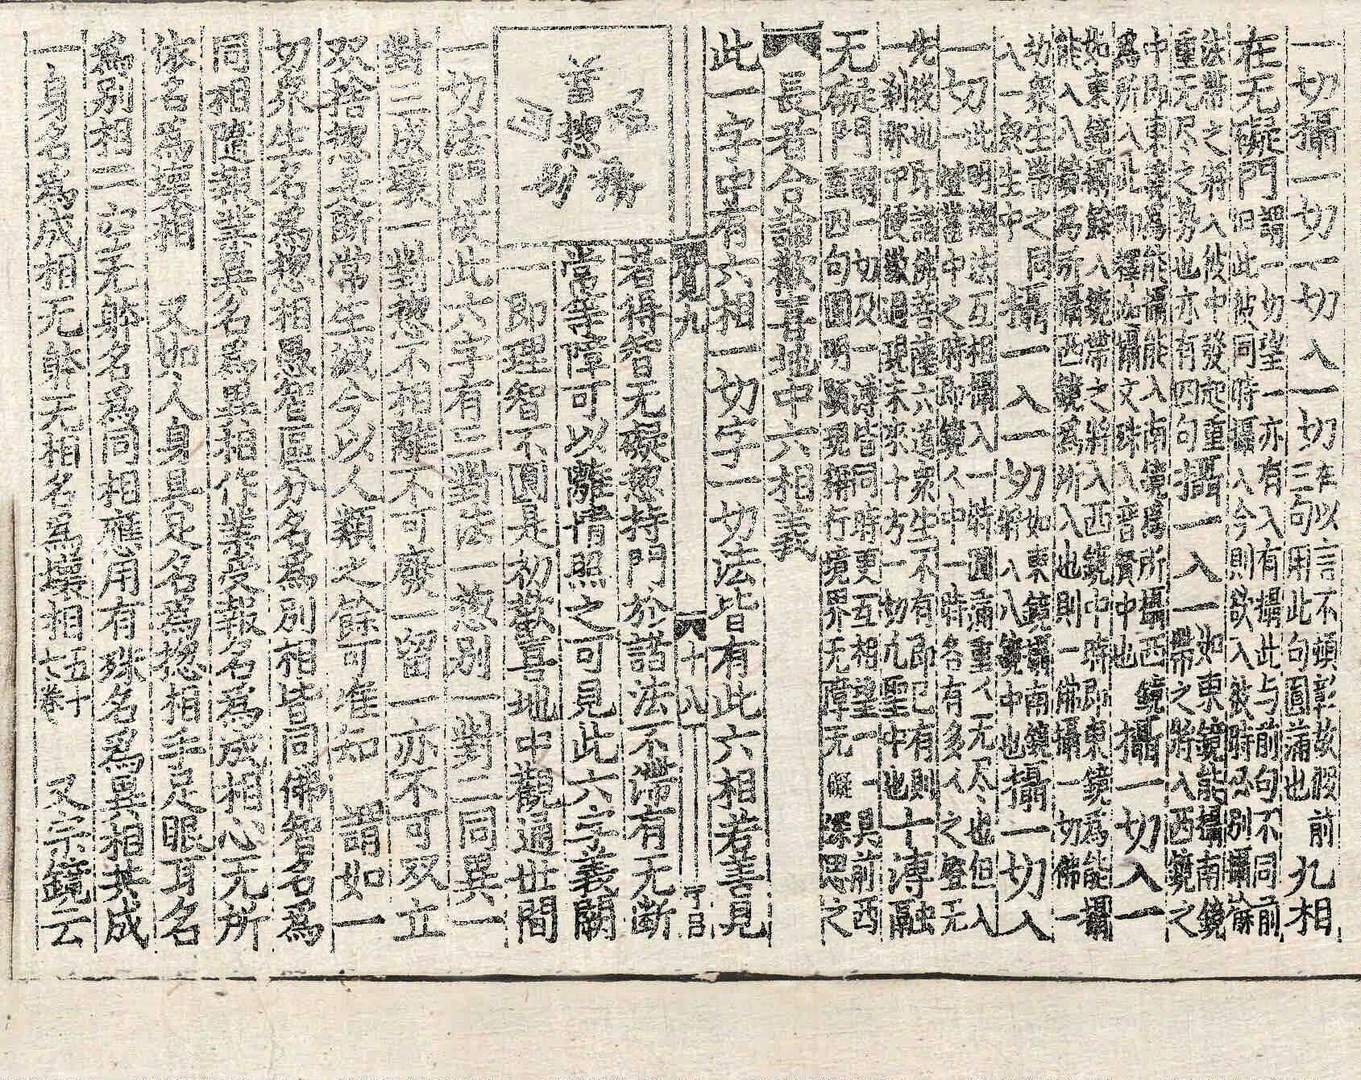 一切攝一切一切入一切本以言不頓彰故假前三句用此句圓滿也九相
在无礙門謂一切望一亦有入有攝此与前句不同前旧此彼同時攝入今則欲入彼時必別攝餘
法帶之將入彼中發起重重无尽之勢也亦有四句攝一入一如東鏡能攝南鏡帶之將入西鏡之
中即東鏡為能攝能入南鏡為所攝西鏡為所入此即釋迦攝文殊入普賢中也攝一切入一
如東鏡攝餘八鏡帶之將入西鏡中時即東鏡為能攝能入八鏡為所攝西鏡為所入也則一佛攝一切佛一
切衆生帶之同入一衆生中攝一入一切如東鏡攝南鏡帶將入八鏡中也攝一切入
一切此明諸法互相攝入一時圓滿重重无尽也但入一燈當中之時即鏡鏡中一時各有多多之燈无
先後也即諸佛菩薩六道衆生不有即已有則一刹那中便徹過現未來十方一切凡聖中也十溥融
无礙門謂一切及一溥皆同時更互相望一一具前西重四句圓明顯現稱行境界无障无礙深思之
長者合論歡喜地中六相義
此一字中有六相一切字一切法皆有此六相若善見
賢九 十八 了日
若得智无礙惣持門於諸法不滯有无断
常等障可以離情照之可見此六字義闕
一即理智不圓是初歡喜地中觀通世間
首 惣 別
一切法門故此六字有三對法一惣別一對二同異一
對三成壞一對惣不相離不可廢一留一亦不可双立
双捨惣共断常生滅今以人類之餘可准知 謂如一
切衆生名為惣相愚智區分名為別相皆同佛智名為
同相隨報業異名為異相作業受報名為成相心无所
依名為壞相 又如人身具足名為惣相手足眼耳名
為別相一一心无躰名為同相應用有殊名為異相共成
一身名為成相无躰无相名為壞相五十七卷 又宗鏡云